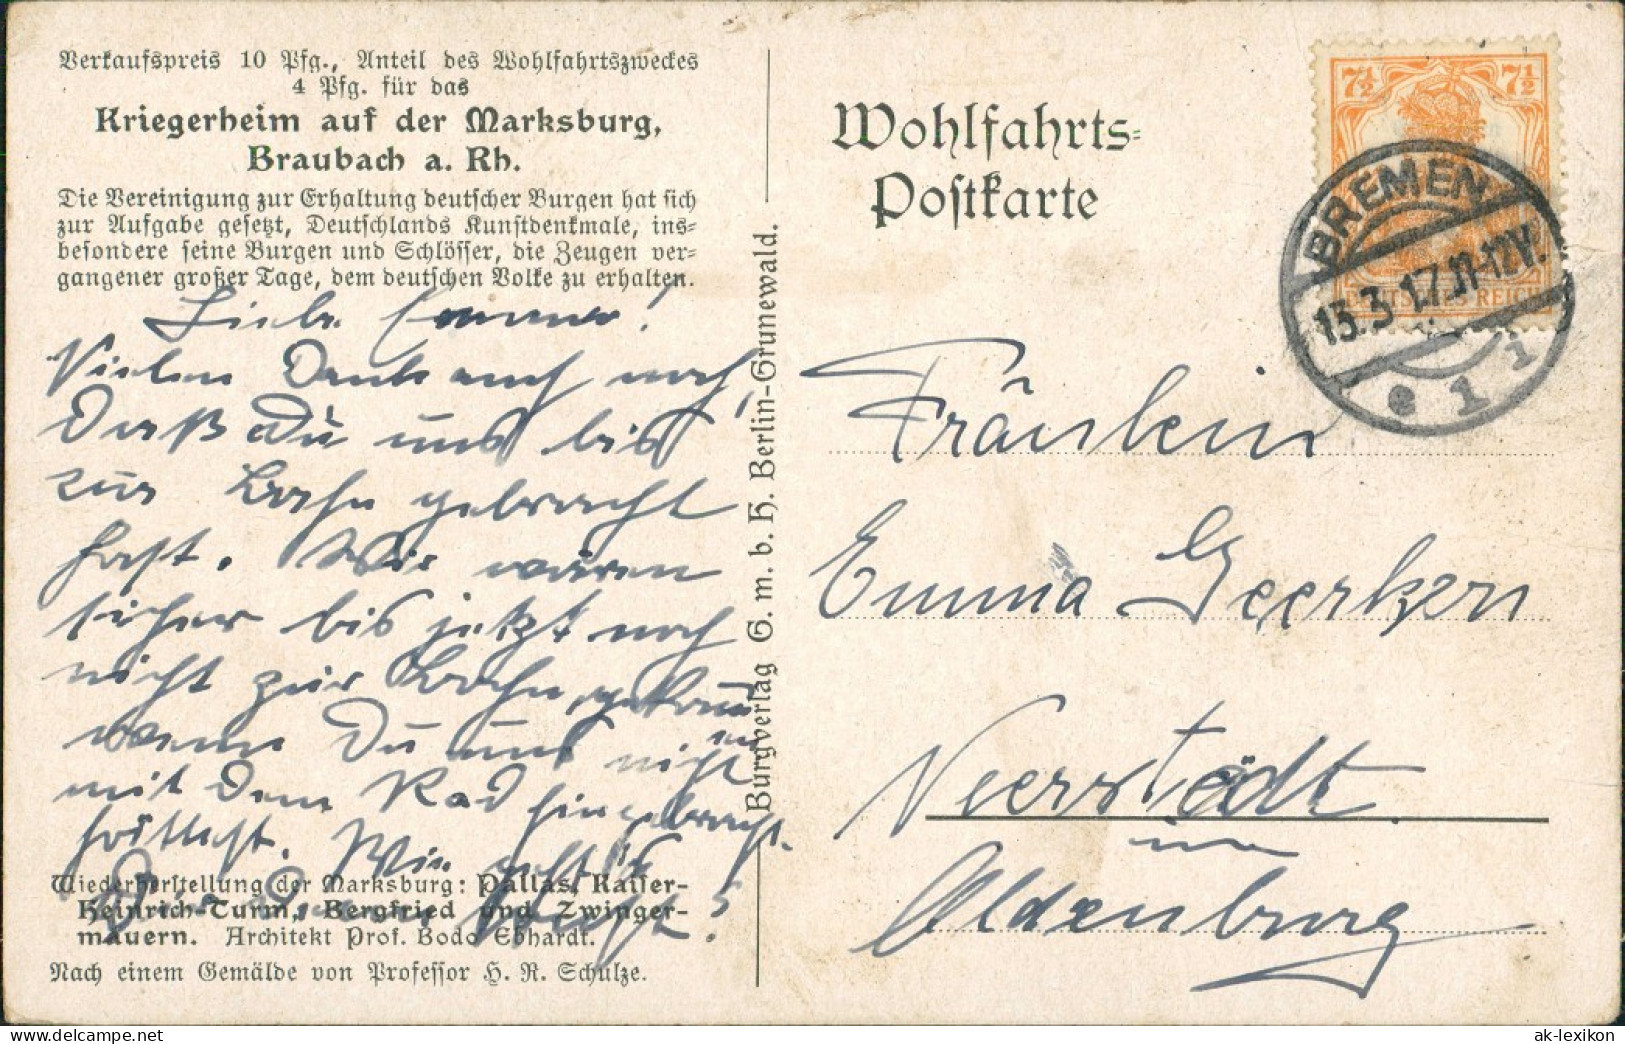 Verkaufspreis 10 Pfg., Anteil des Wohlfahrtszweckes
4 Pfg. für das
Kriegerheim auf der Marksburg,
Braubach a. Rh.
Die Vereinigung zur Erhaltung deutscher Burgen hat sich
zur Aufgabe gesetzt, Deutschlands Kunstdenkmale, ins-
besondere seine Burgen und Schlösser, die Zeugen ver-
gangener großer Tage, dem deutschen Volke zu erhalten.
Liebe Emma!
Vielen Dank auch noch,
daß Du uns bis
zur Bahn gebracht
hast. Wir wären
sicher bis jetzt noch
nicht zur Bahn gekom
men
wenn Du uns nicht
mit dem Rad hingebracht
hättest. Wie geht's
Wiederherstellung der Marksburg: Pallas, Kaiser-
Heinrich-Turm, Bergfried und Zwinger-
mauern. Architekt Prof. Bodo Ebhardt.
Nach einem Gemälde von Professor H. R. Schulze.
Burgverlag G. m. b. H. Berlin-Grunewald.
Wohlfahrts-
Postkarte
7½ 7½
DEUTSCHES REICH
BREMEN
13.3.17.11-12V.
e 1 i
Fräulein
Emma Geerken
Neerstedt
in
Oldenburg
www.delcampe.net
ak-lexikon